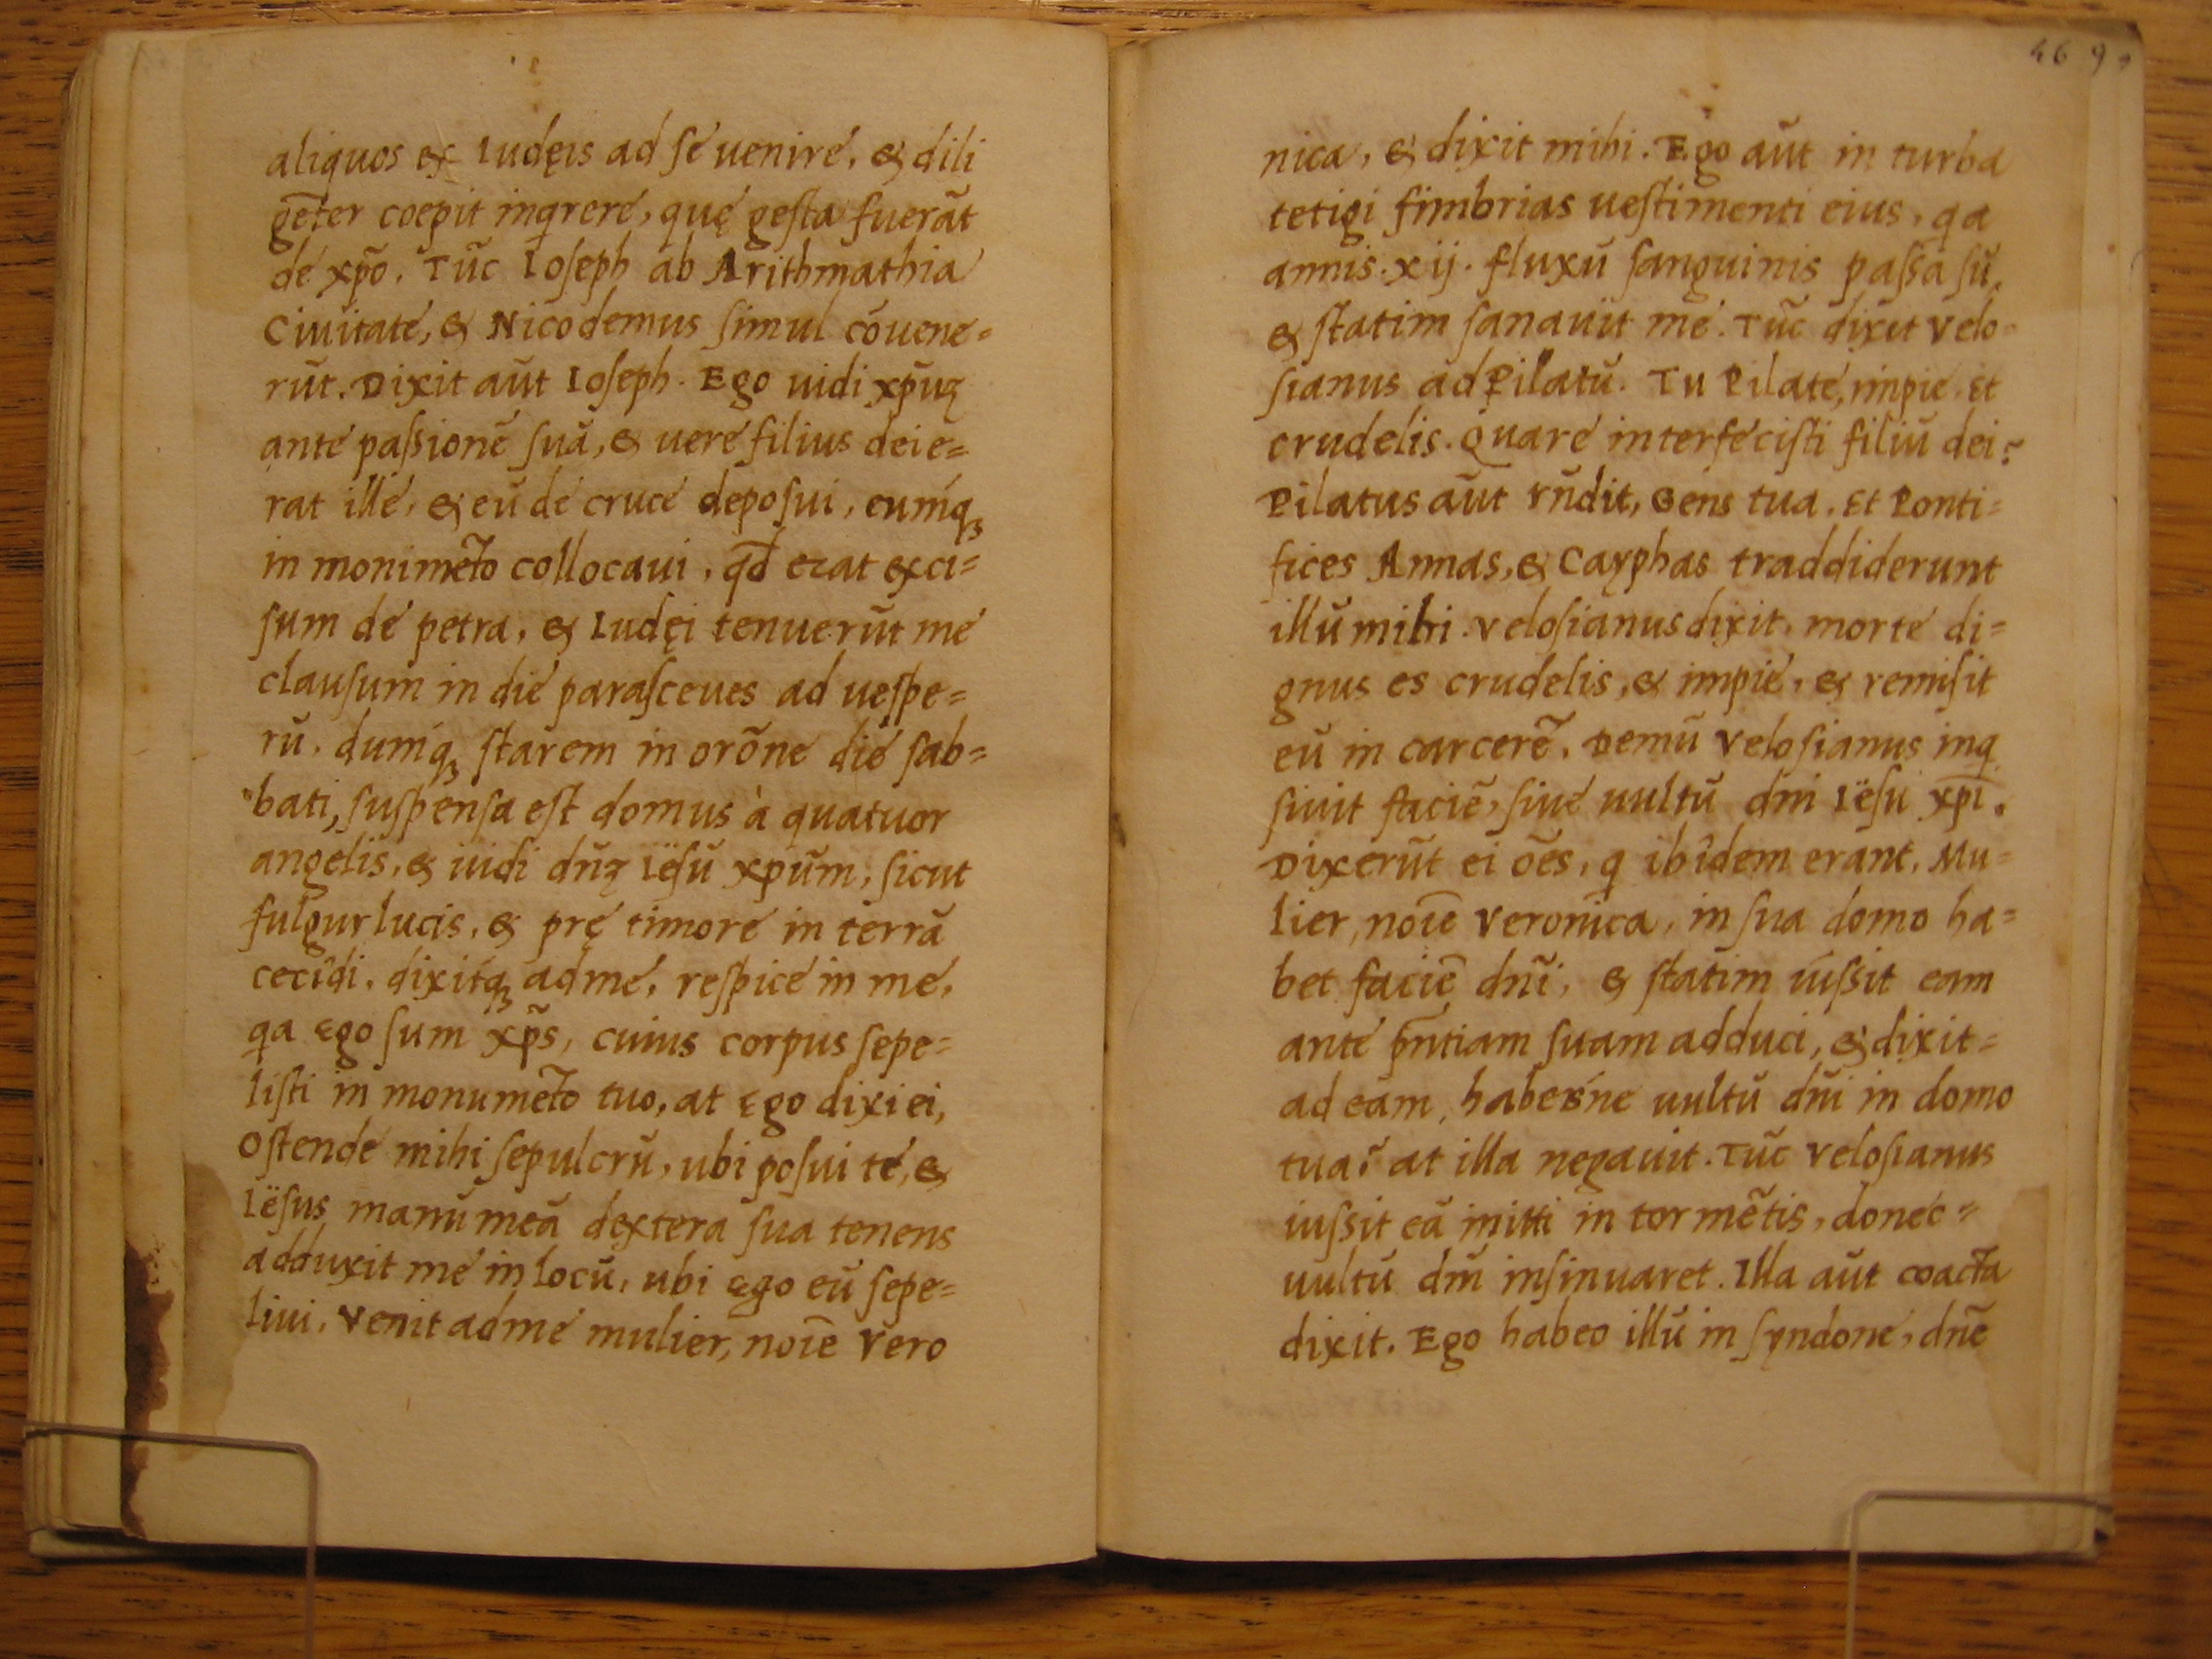 aliquos ex Iudęis ad ſe uenire, & dili
gẽter coepit inqrere, quę geſta fuerãt
de xp̃o. Tũc Ioſeph ab Arithmathia
Ciuitate, & Nicodemus ſimul cõuene=
rũt. Dixit aũt Ioſeph. Ego uidi xp̃uʒ
ante paſsionẽ ſuã, & uere filius dei e=
rat ille, & eũ de cruce deposui, eumq́ʒ
in monimẽto collocaui, qd̃ erat exci=
ſum de petra, & Iudęi tenuerũt me
clauſum in die paraſceues ad ueſpe=
rũ. dumq́ʒ ſtarem in orõne die ſab=
bati, ſuſpenſa eſt domus à quatuor
angelis, & uidi dñʒ Iëſũ xpũm, ſicut
fulgur lucis, & prę timore in terrã
cecîdi. dixitq́ʒ ad me, reſpice in me,
qa Ego ſum xp̃s, cuius corpus ſepe=
liſti in monumẽto tuo, at Ego dixi ei,
Oſtende mihi ſepulcrũ, ubi poſui te, &
Iëſus manũ meã dextera ſua tenens
adduxit me in locũ, ubi Ego eũ ſepe=
liui. Venit ad me mulier, noĩe Vero
46 9
nica, & dixit mihi. Ego aũt in turba
tetigi fimbrias ueſtimenti eius, qa
annis. xij. fluxũ ſanguinis paſſa ſũ,
& ſtatim ſanauit me. Tũc dixit Velo=
ſianus ad Pilatũ. Tu Pilate, impie. Et
crudelis. Quare interfeciſti filiũ dei?
Pilatus aũt rñdit, Gens tua. Et Ponti=
fices Annas, & Cayphas traddiderunt
illũ mihi. Veloſianus dixit, morte di=
gnus es crudelis, & impie, & remiſit
eũ in carcerẽ. Demũ Veloſianus inq
ſiuit faciẽ, ſiue uultũ dñi Iëſu xp̃i.
Dixerũt ei oẽs, q ibîdem erant, Mu=
lier, noĩe Veronica, in ſua domo ha=
bet faciẽ dñi, & ſtatim iuſſit eam
ante p̃ntiam ſuam adduci, & dixit=
ad eam, habeśne uultũ dñi in domo
tua? at illa negauit. Tũc Veloſianus
iuſſit eã mitti in tormẽtis, donec=
uultũ dñi inſinuaret. Illa aũt coacta
dixit. Ego habeo illũ in ſyndone, dñe